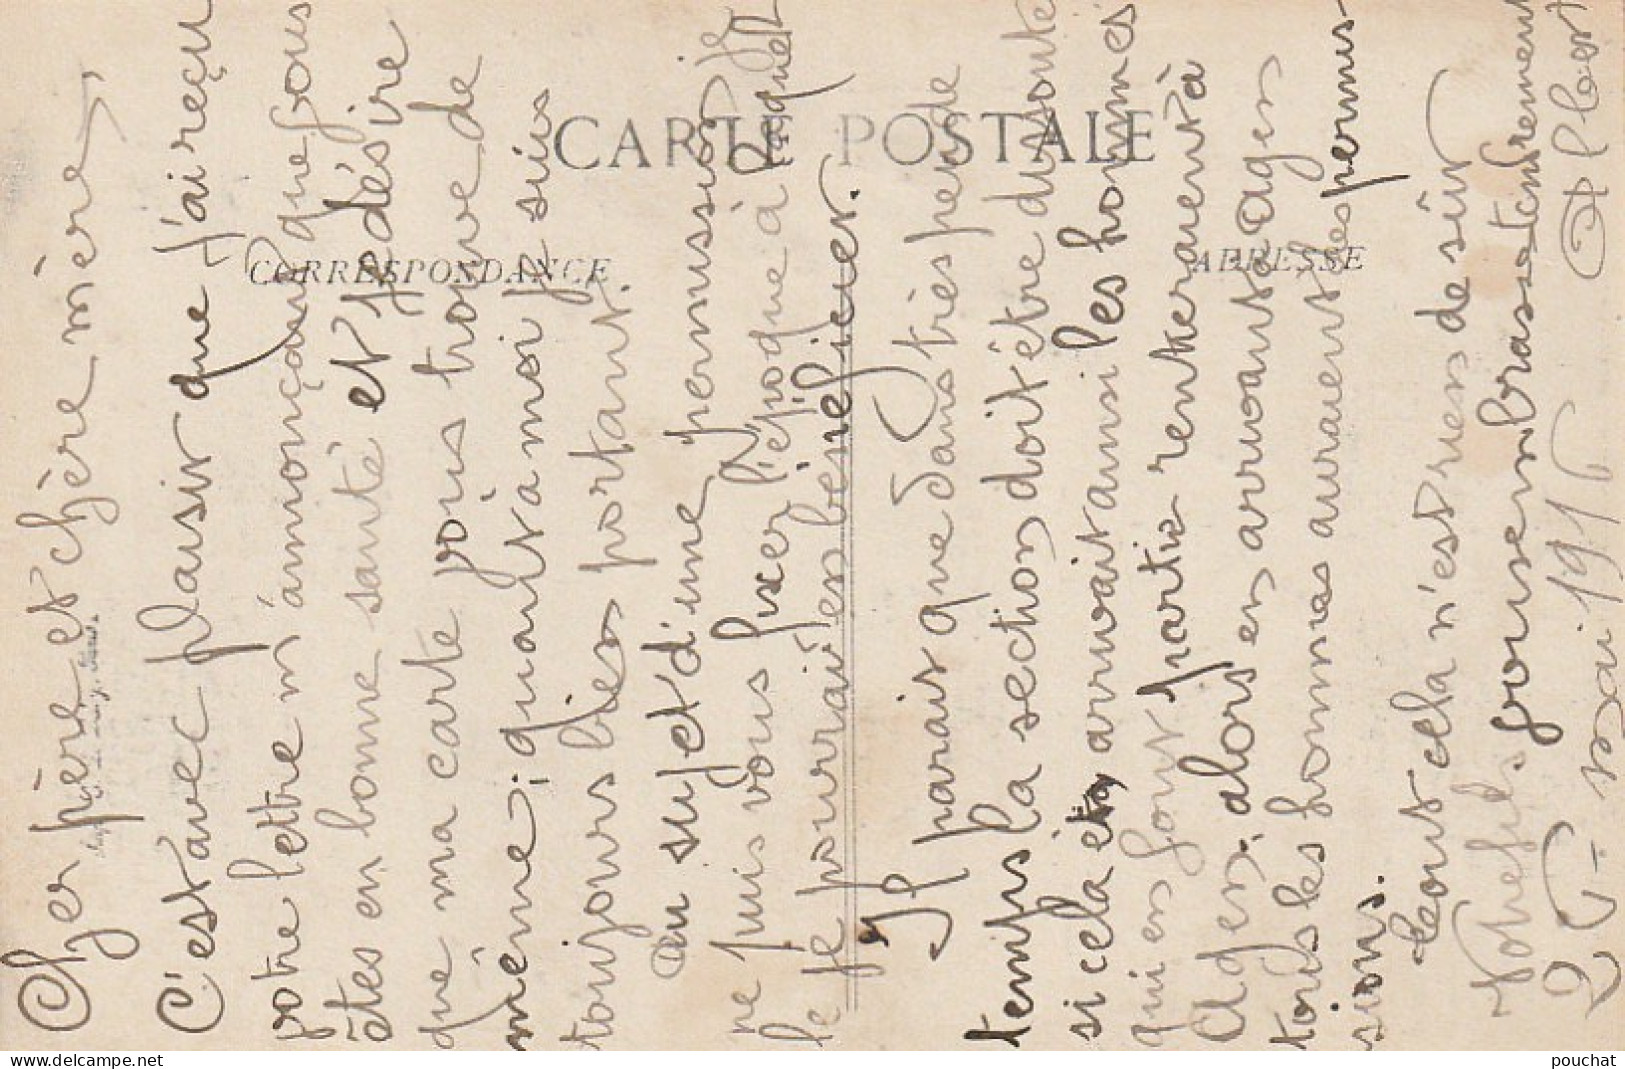 CARTE POSTALE
CORRESPONDANCE
ADRESSE
Cher père et chère mère,
C'est avec plaisir que j'ai reçu
votre lettre m'annonçant que vous
êtes en bonne santé et je désire
que ma carte vous trouve de
même; quant à moi je suis
toujours bien portant.
Au sujet d'une permission je
ne puis vous fixer l'époque à laquelle
le je pourrai en bénéficier.
Il parait que dans très peu de
temps la section doit être dissoute
si cela arrivait ainsi les hommes
qui en font partie rentreraient à
Agen. alors en arrivant à Agen
tous les hommes auraient des permis-
sions.
tout cela n'est rien de sûr
Votre fils vous embrasse tendrement
27 mai 1916 Albert
pouchat